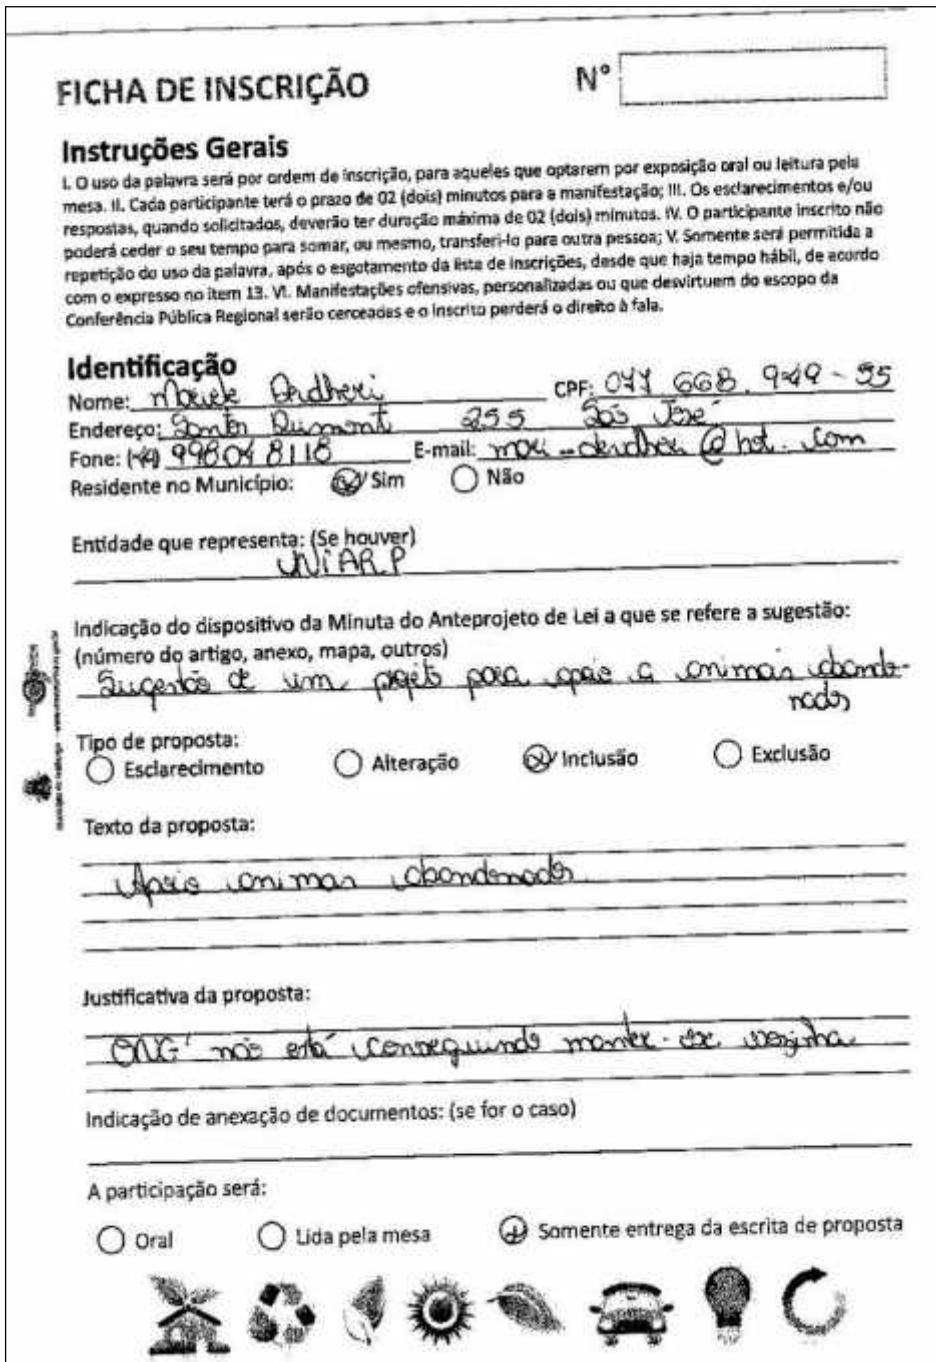 FICHA DE INSCRIÇÃO
N°
Instruções Gerais
I. O uso da palavra será por ordem de inscrição, para aqueles que optarem por exposição oral ou leitura pela
mesa. II. Cada participante terá o prazo de 02 (dois) minutos para a manifestação; III. Os esclarecimentos e/ou
respostas, quando solicitados, deverão ter duração máxima de 02 (dois) minutos. IV. O participante inscrito não
poderá ceder o seu tempo para somar, ou mesmo, transferi-lo para outra pessoa; V. Somente será permitida a
repetição do uso da palavra, após o esgotamento da lista de inscrições, desde que haja tempo hábil, de acordo
com o expresso no item 13. VI. Manifestações ofensivas, personalizadas ou que desvirtuem do escopo da
Conferência Pública Regional serão cerceadas e o inscrito perderá o direito à fala.
Identificação
Nome: CPF: 077 668. 949-55
Endereço: Santos Dumont 255 São José
Fone: (49) 99804 8118 E-mail: @hot.com
Residente no Município: Sim Não
Entidade que representa: (Se houver)
UNIARP
Indicação do dispositivo da Minuta do Anteprojeto de Lei a que se refere a sugestão:
(número do artigo, anexo, mapa, outros)
Sugestão de um projeto para apoio a animais abando-
nados
Tipo de proposta:
Esclarecimento Alteração Inclusão Exclusão
Texto da proposta:
Apoio animais abandonados
Justificativa da proposta:
ONG não está conseguindo manter-se sozinha
Indicação de anexação de documentos: (se for o caso)
A participação será:
Oral Lida pela mesa Somente entrega da escrita de proposta